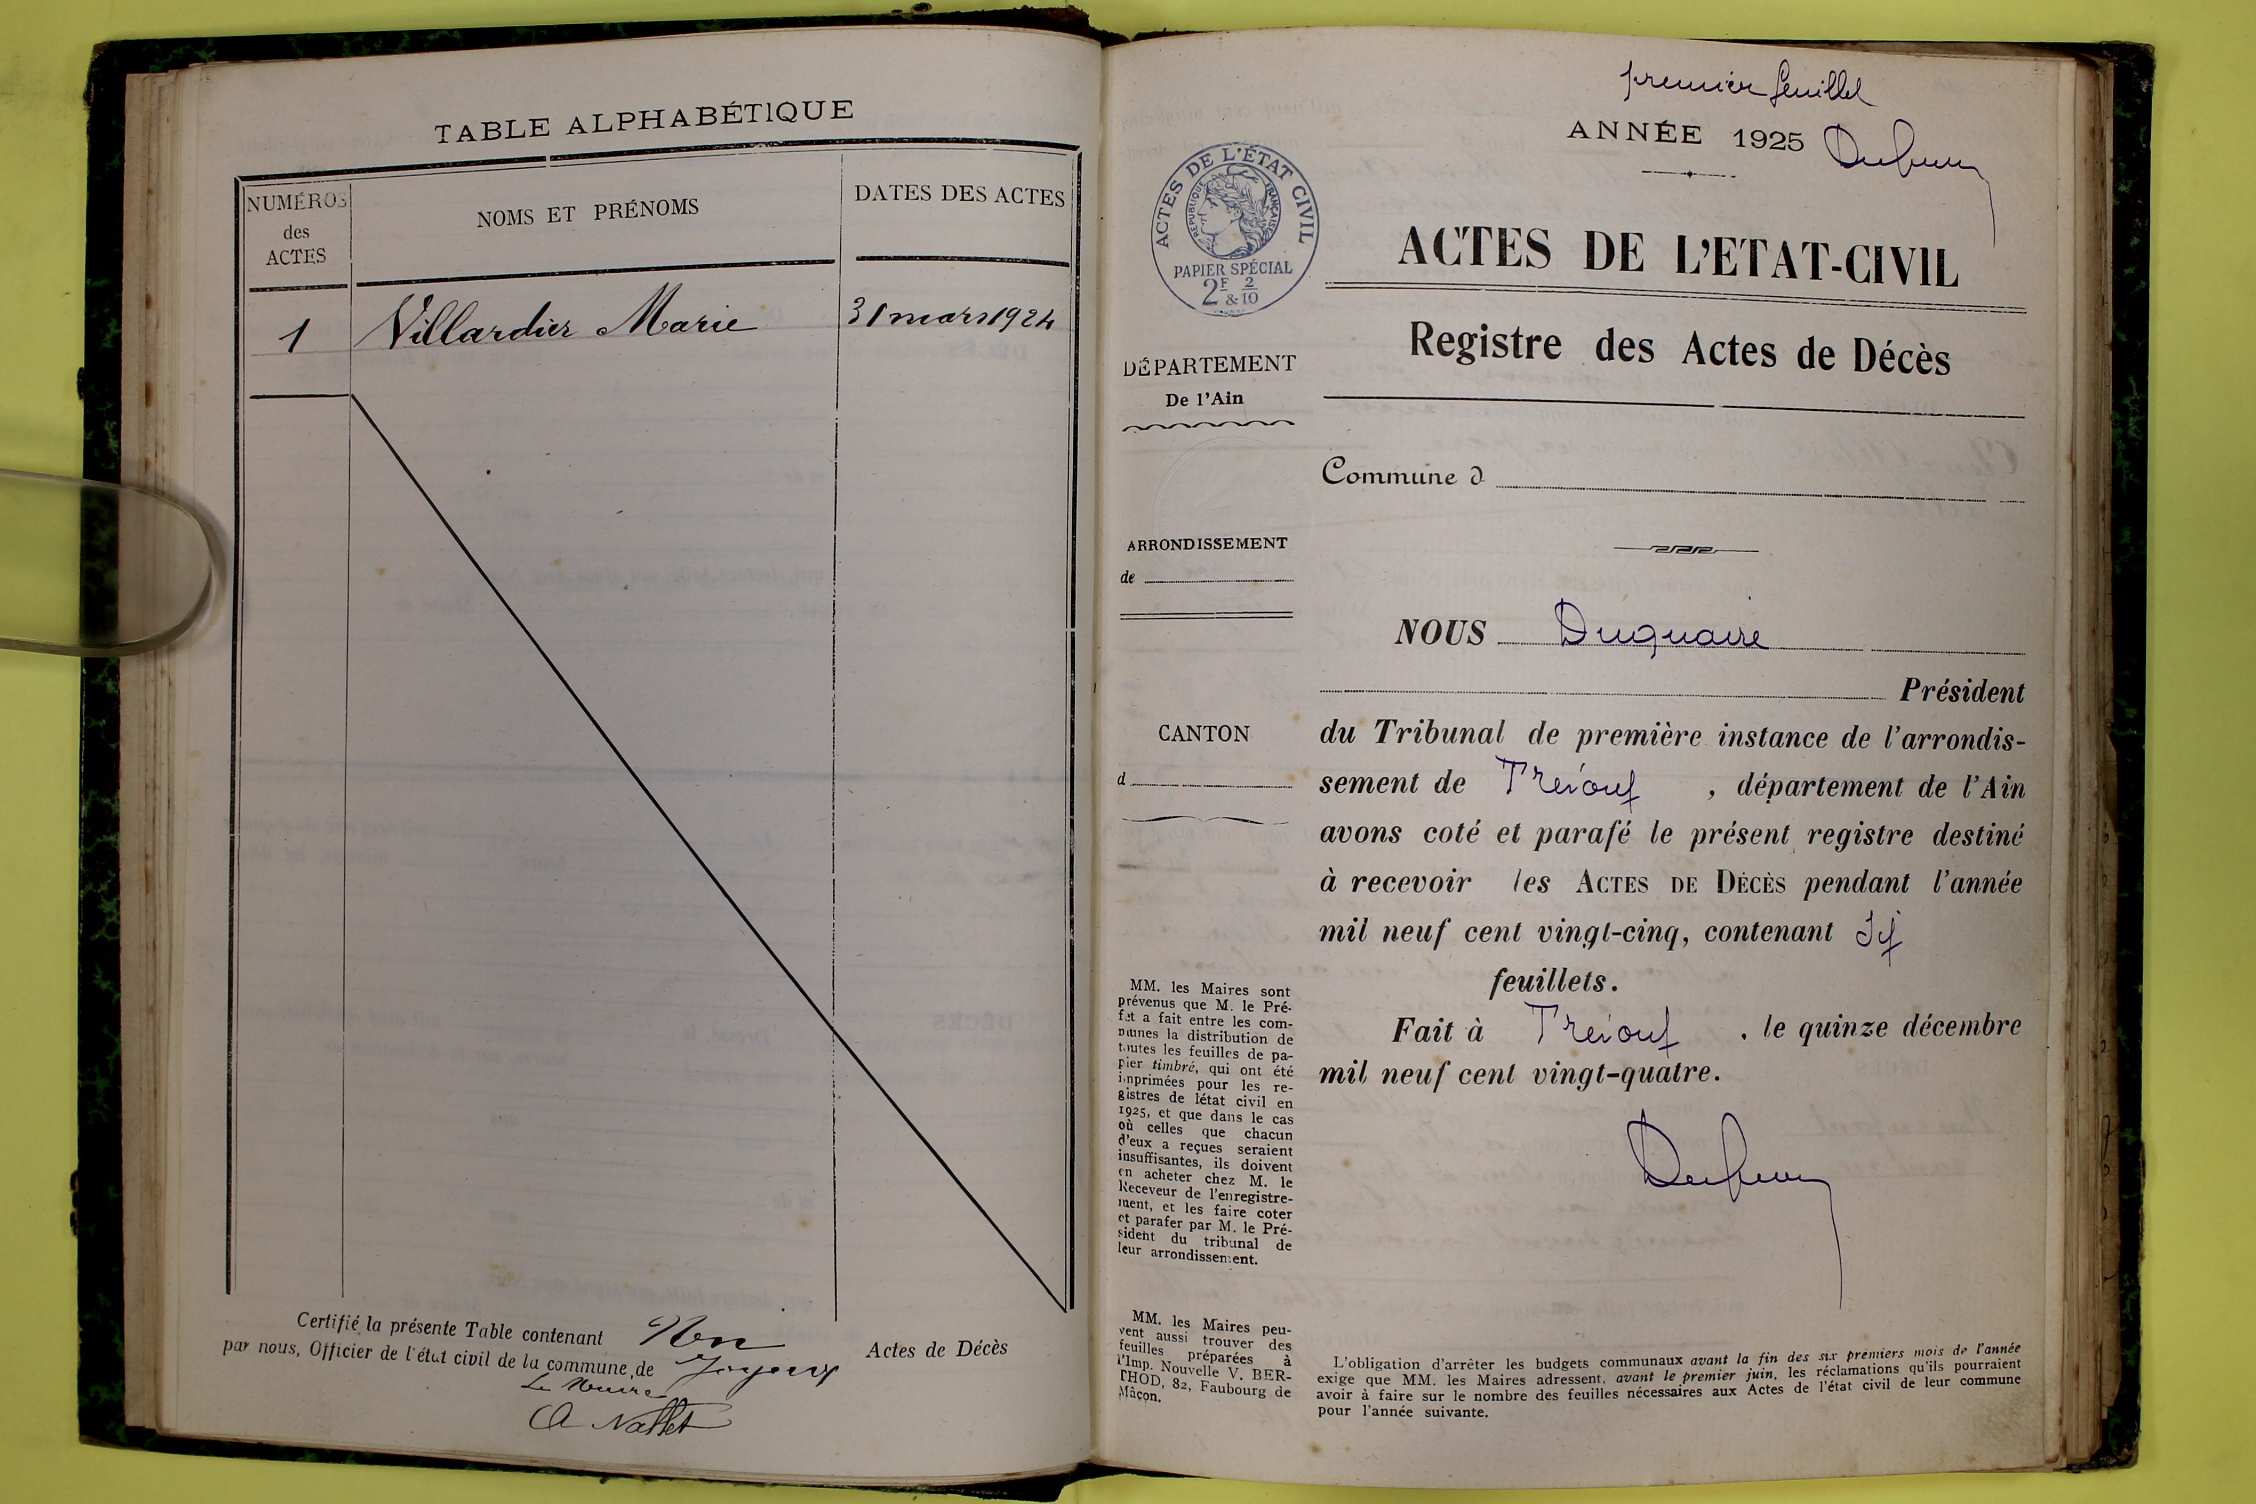 TABLE ALPHABÉTIQUE
NUMÉROS
des
ACTES
NOMS ET PRÉNOMS
DATES DES ACTES
1
Villardier Marie
31 mars 1924
Certifié la présente Table contenant
Actes de Décès
par nous, Officier de l'état civil de la commune de
Le Maire
premier feuillet
ANNÉE 1925
ACTES DE L'ÉTAT CIVIL
RÉPUBLIQUE FRANÇAISE
PAPIER SPÉCIAL
2F & 2/10
ACTES DE L'ETAT-CIVIL
Registre des Actes de Décès
DÉPARTEMENT
De l'Ain
Commune d
ARRONDISSEMENT
de
NOUS Duquaire
Président
CANTON
d
du Tribunal de première instance de l'arrondis-
sement de Trévoux , département de l'Ain
avons coté et parafé le présent registre destiné
à recevoir les ACTES DE DÉCÈS pendant l'année
mil neuf cent vingt-cinq, contenant
feuillets.
Fait à Trévoux . le quinze décembre
mil neuf cent vingt-quatre.
MM. les Maires sont
prévenus que M. le Pré-
fet a fait entre les com-
munes la distribution de
toutes les feuilles de pa-
pier timbré, qui ont été
imprimées pour les re-
gistres de létat civil en
1925, et que dans le cas
où celles que chacun
d'eux a reçues seraient
insuffisantes, ils doivent
en acheter chez M. le
Receveur de l'enregistre-
ment, et les faire coter
et parafer par M. le Pré-
sident du tribunal de
leur arrondissement.
MM. les Maires peu-
vent aussi trouver des
feuilles préparées à
l'Imp. Nouvelle V. BER-
THOD, 82, Faubourg de
Mâcon.
L'obligation d'arrêter les budgets communaux avant la fin des six premiers mois de l'année
exige que MM. les Maires adressent, avant le premier juin, les réclamations qu'ils pourraient
avoir à faire sur le nombre des feuilles nécessaires aux Actes de l'état civil de leur commune
pour l'année suivante.